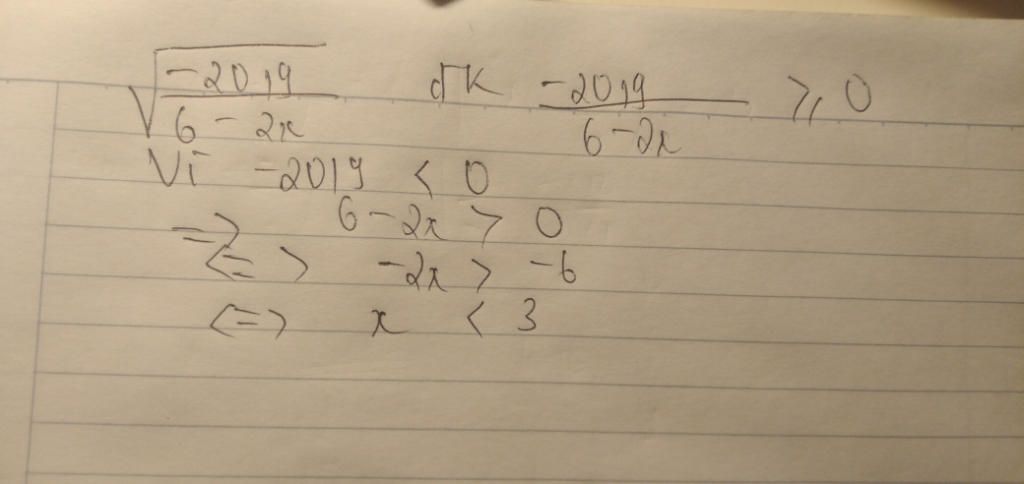 √(-2019/(6-2x)) đk -2019/(6-2x) ≥ 0
Vì -2019 < 0
=> 6-2x > 0
<=> -2x > -6
<=> x < 3